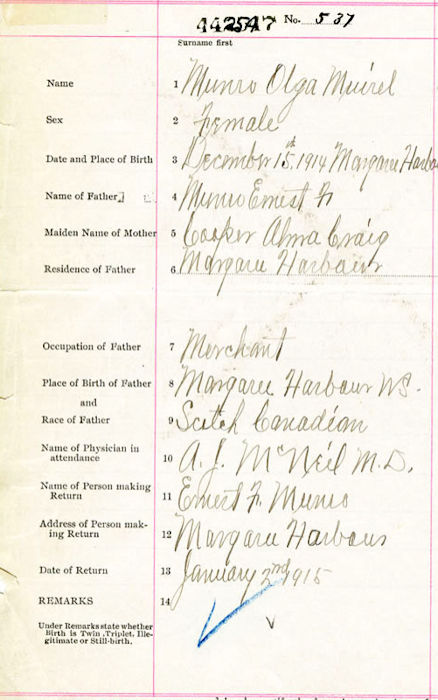 442547 No. 537
Surname first
Name 1 Munro Olga Muirel
Sex 2 Female
Date and Place of Birth 3 December 15th 1914 Margaree Harbou
Name of Father 4 Munro Ernest F.
Maiden Name of Mother 5 Cooper Alma Craig
Residence of Father 6 Margaree Harbour
Occupation of Father 7 Merchant
Place of Birth of Father 8 Margaree Harbour NS.
and
Race of Father 9 Scotch Canadian
Name of Physician in
attendance 10 A. J. McNeil M.D.
Name of Person making
Return 11 Ernest F. Munro
Address of Person mak-
ing Return 12 Margaree Harbour
Date of Return 13 January 2nd 1915
REMARKS 14
Under Remarks state whether
Birth is Twin, Triplet, Ille-
gitimate or Still-birth.